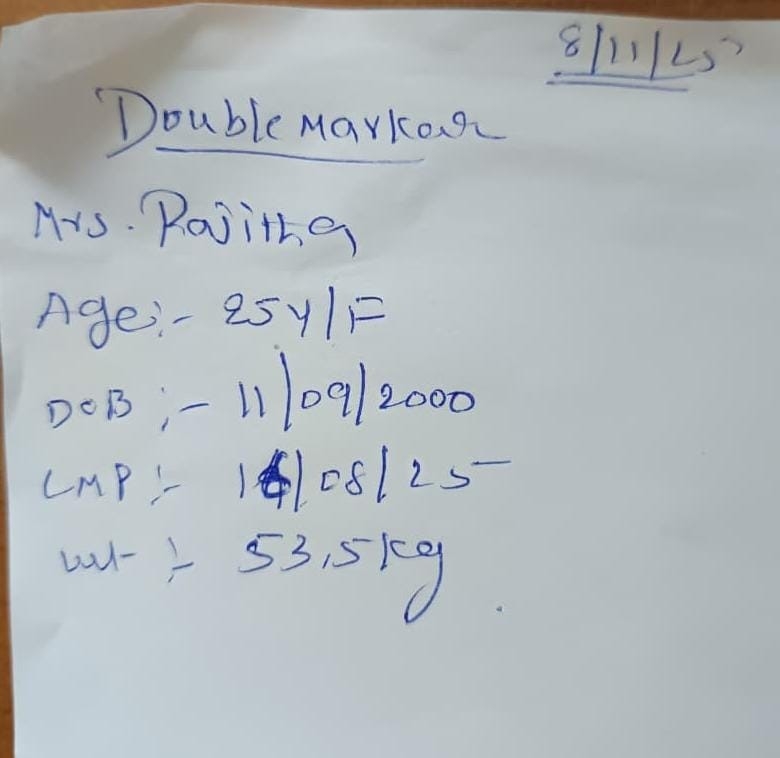 8/11/25
Double Markar
Mrs. Rajitha
Age:- 25Y/F
DOB :- 11/09/2000
LMP :- /08/25
Wt :- 53.5kg